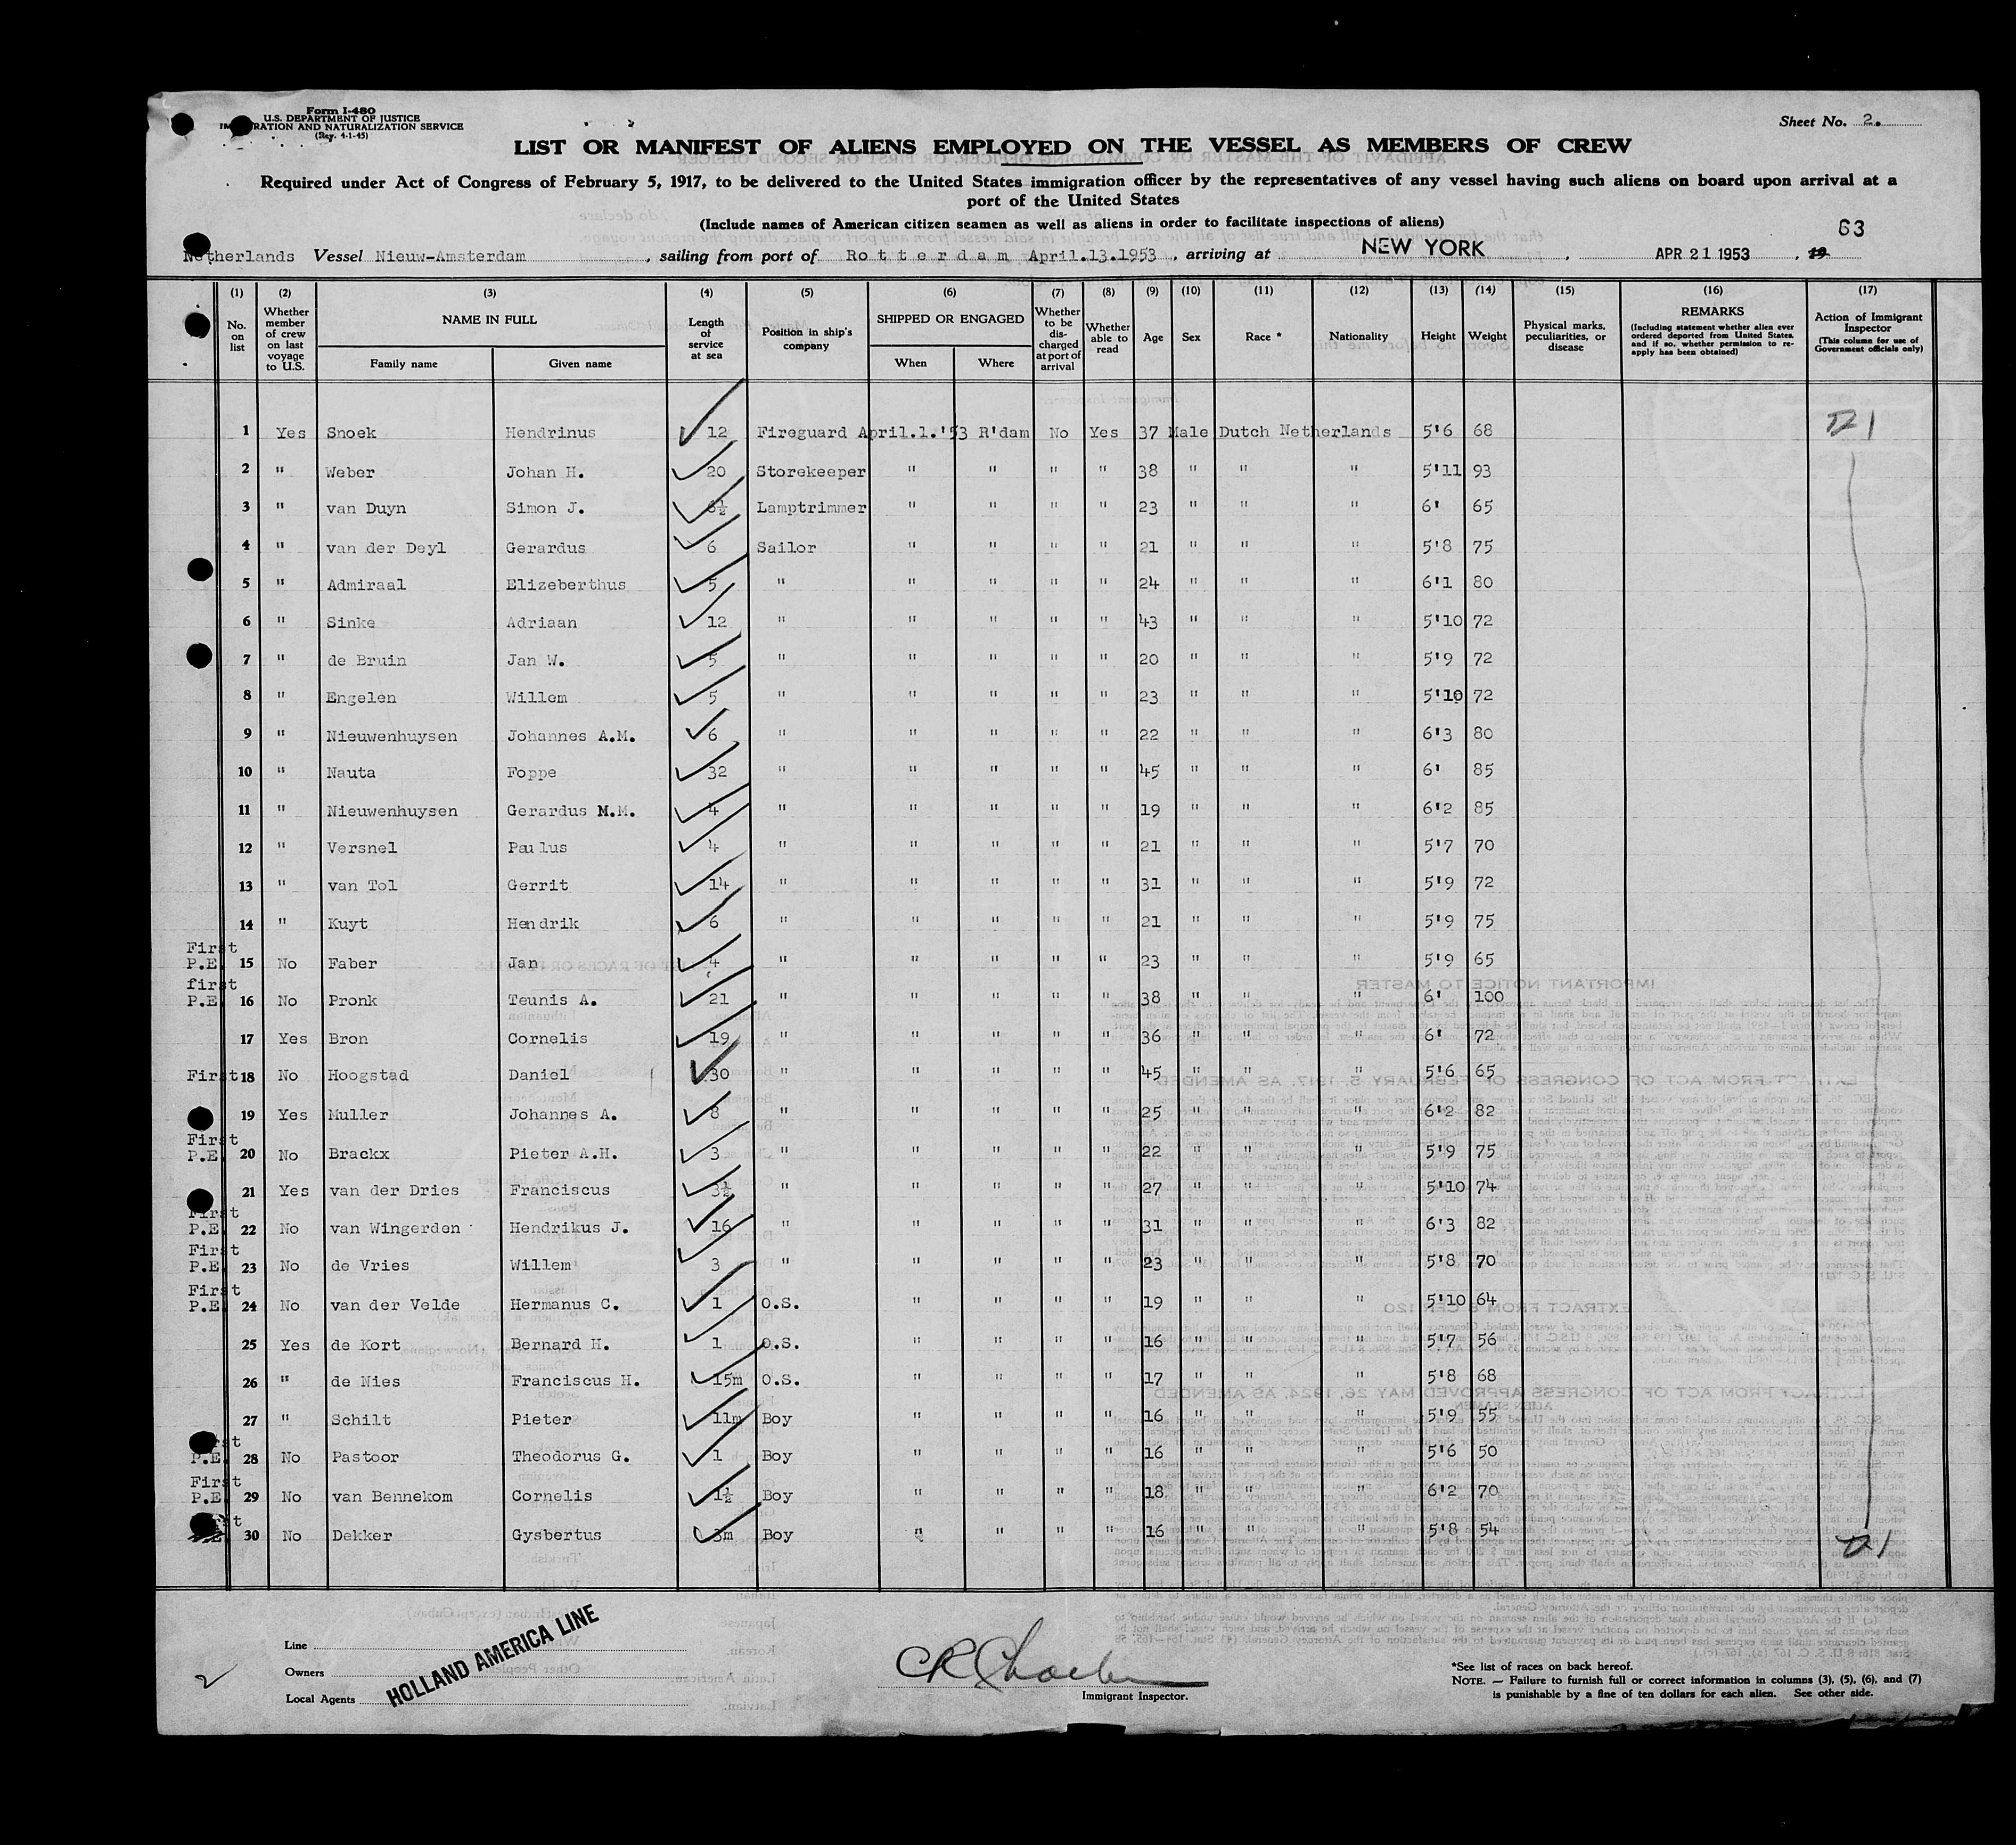 Form I-480
U.S. DEPARTMENT OF JUSTICE
IMMIGRATION AND NATURALIZATION SERVICE
(Rev. 4-1-45)
Sheet No. 2.
LIST OR MANIFEST OF ALIENS EMPLOYED ON THE VESSEL AS MEMBERS OF CREW
Required under Act of Congress of February 5, 1917, to be delivered to the United States immigration officer by the representatives of any vessel having such aliens on board upon arrival at a
port of the United States
(Include names of American citizen seamen as well as aliens in order to facilitate inspections of aliens)
63
Netherlands Vessel Nieuw-Amsterdam, sailing from port of Rotterdam April.13.1953, arriving at NEW YORK, APR 21 1953, 19
(1) (2) (3) (4) (5) (6) (7) (8) (9) (10) (11) (12) (13) (14) (15) (16) (17)
No. on list
Whether member of crew on last voyage to U.S.
NAME IN FULL
Family name Given name
Length of service at sea
Position in ship's company
SHIPPED OR ENGAGED
When Where
Whether to be discharged at port of arrival
Whether able to read
Age
Sex
Race *
Nationality
Height
Weight
Physical marks, peculiarities, or disease
REMARKS
(Including statement whether alien ever ordered deported from United States, and if so, whether permission to re-apply has been obtained)
Action of Immigrant Inspector
(This column for use of Government officials only)
1 Yes Snoek Hendrinus 12 Fireguard April.1.'53 R'dam No Yes 37 Male Dutch Netherlands 5'6 68
2 " Weber Johan H. 20 Storekeeper " " " " 38 " " " 5'11 93
3 " van Duyn Simon J. 6½ Lamptrimmer " " " " 23 " " " 6' 65
4 " van der Deyl Gerardus 6 Sailor " " " " 21 " " " 5'8 75
5 " Admiraal Elizeberthus 5 " " " " " 24 " " " 6'1 80
6 " Sinke Adriaan 12 " " " " " 43 " " " 5'10 72
7 " de Bruin Jan W. 5 " " " " " 20 " " " 5'9 72
8 " Engelen Willem 5 " " " " " 23 " " " 5'10 72
9 " Nieuwenhuysen Johannes A.M. 6 " " " " " 22 " " " 6'3 80
10 " Nauta Foppe 32 " " " " " 45 " " " 6' 85
11 " Nieuwenhuysen Gerardus M.M. 4 " " " " " 19 " " " 6'2 85
12 " Versnel Paulus 4 " " " " " 21 " " " 5'7 70
13 " van Tol Gerrit 14 " " " " " 31 " " " 5'9 72
14 " Kuyt Hendrik 6 " " " " " 21 " " " 5'9 75
First
P.E. 15 No Faber Jan 4 " " " " " 23 " " " 5'9 65
first
P.E. 16 No Pronk Teunis A. 21 " " " " " 38 " " " 6' 100
17 Yes Bron Cornelis 19 " " " " " 36 " " " 6' 72
First 18 No Hoogstad Daniel 30 " " " " " 45 " " " 5'6 65
19 Yes Muller Johannes A. 8 " " " " " 25 " " " 6'2 82
First
P.E. 20 No Brackx Pieter A.H. 3 " " " " " 22 " " " 5'9 75
21 Yes van der Dries Franciscus 3½ " " " " " 27 " " " 5'10 74
First
P.E. 22 No van Wingerden Hendrikus J. 16 " " " " " 31 " " " 6'3 82
First
P.E. 23 No de Vries Willem 3 " " " " " 23 " " " 5'8 70
First
P.E. 24 No van der Velde Hermanus C. 1 O.S. " " " " 19 " " " 5'10 64
25 Yes de Kort Bernard H. 1 O.S. " " " " 16 " " " 5'7 56
26 " de Nies Franciscus H. 15m O.S. " " " " 17 " " " 5'8 68
27 " Schilt Pieter 11m Boy " " " " 16 " " " 5'9 55
First
P.E. 28 No Pastoor Theodorus G. 1 Boy " " " " 16 " " " 5'6 50
First
P.E. 29 No van Bennekom Cornelis 1½ Boy " " " " 18 " " " 6'2 70
30 No Dekker Gysbertus 3m Boy " " " " 16 " " " 5'8 54
Line
Owners
Local Agents
HOLLAND AMERICA LINE
2
Immigrant Inspector.
*See list of races on back hereof.
NOTE. — Failure to furnish full or correct information in columns (3), (5), (6), and (7)
is punishable by a fine of ten dollars for each alien. See other side.